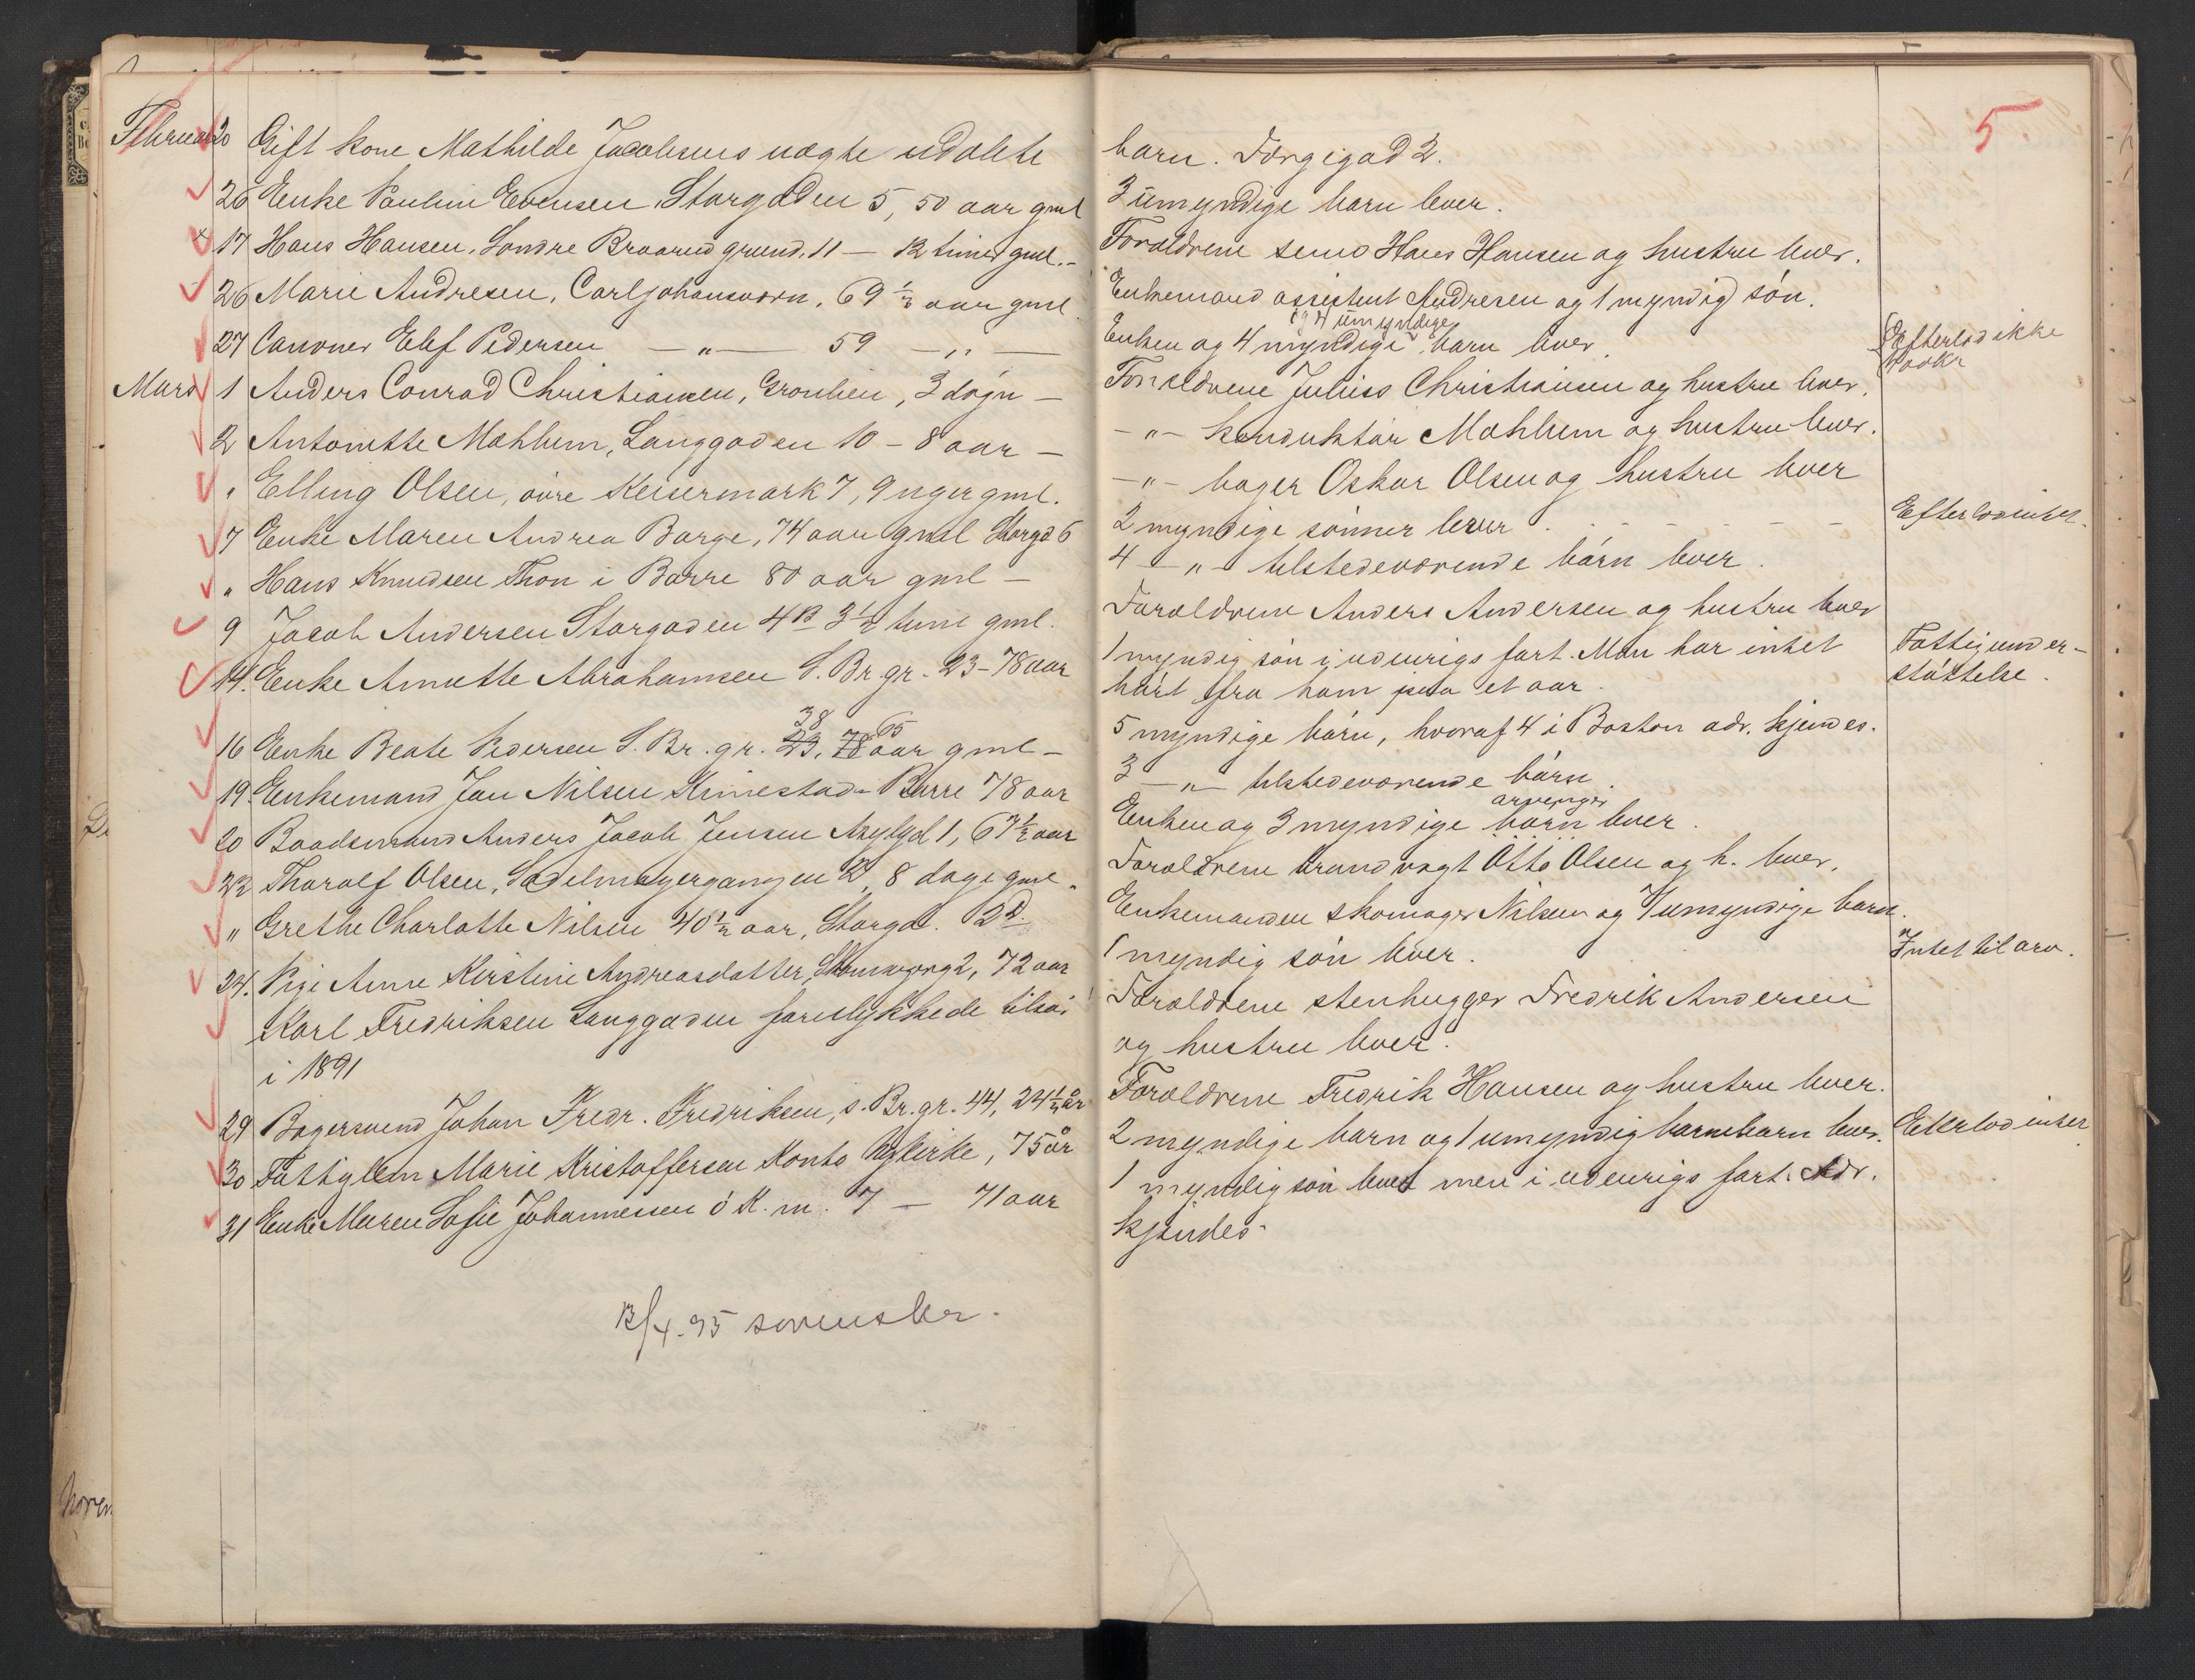 5.
Februar 20 Gift kone Mathilde Jacobsens uægte udøbte barn. Færgigad 2.
26 Enke Pauline Evensen Storgaden 5, 50 aar gml 3 umyndige barn lever.
x 17 Hans Hansen, Søndre Braarud grund. 11 — 12 timer gml. - Forældrene Hans Hansen og hustru lever.
26 Marie Andresen, Carljohansværn, 69 1/2 aar gml Enkemand assistent Andresen og 1 myndig søn.
og 4 umyndige
27 Canoner Elef Pedersen —„— 59 —„— Enken og 4 myndige barn lever. Efterlod ikke
Mars 1 Anders Conrad Christiansen, Grønlien, 3 døgn — Forældrene Julius Christiansen og hustru lever.
2 Antonette Mæhlum, Langgaden 10 - 8 aar — -„- konduktør Mæhlum og hustru lever.
" Elling Olsen, øvre Keisermark 7, 9 uger gml. -„- bager Oskar Olsen og hustru lever
7 Enke Maren Andrea Borge, 74 aar gml Storgd 6 2 myndige sønner lever. - - - - - - Efterlod intet.
" Hans Knudsen Thon i Borre 80 aar gml — 4 —„— tilstedeværende børn lever.
9 Jacob Andersen Storgaden 4B 3 1/2 time gml. Forældrene Anders Andersen og hustru lever
14. Enke Annette Abrahamsen S. Br. gr. 23 - 78 aar 1 myndig søn i udenrigs fart. Man har intet Fattigunder-
hørt fra ham paa et aar. støttelse.
38 65
16 Enke Beate Pedersen S. Br. gr. 23, 78 aar gml — 5 myndige børn, hvoraf 4 i Boston adr. kjendes.
19. Enkemand Jan Nilsen Kinnestad - Borre 78 aar 3 —„— tilstedeværende børn.
arvinger
20 Baadsmand Anders Jacob Jensen Asylgd 1, 67 1/2 aar Enken og 3 myndige børn lever.
22 Tharalf Olsen, Sadelmagergangen 2, 8 dage gml. Forældrene brandvagt Otto Olsen og h. lever.
" Grethe Charlotte Nilsen 40 1/2 aar, Storgd. 12d. Enkemanden skomager Nilsen og 7 umyndige børn.
24. Pige Anne Kirstine Andreasdatter, 2, 72 aar 1 myndig søn lever. Intet til arv.
Karl Fredriksen Langgaden forulykkede tilsøs Forældrene stenhugger Fredrik Andersen
i 1891 og hustru lever.
29 Bagersvend Johan Fredr. Fredriksen, s. Br. gr. 44, 24 1/2 år Forældrene Fredrik Hansen og hustru lever.
30 Fattiglem Marie Kristoffersen Konto Nykirke, 75 år 2 myndige barn og 1 umyndig barnebarn lever. Efterlod intet
31 Enke Maren Sofie Johannessen ø K. m. 7 — 71 aar 1 myndig søn lever men i udenrigs fart. Adr.
kjendes.
12/4. 95 sorenskr.